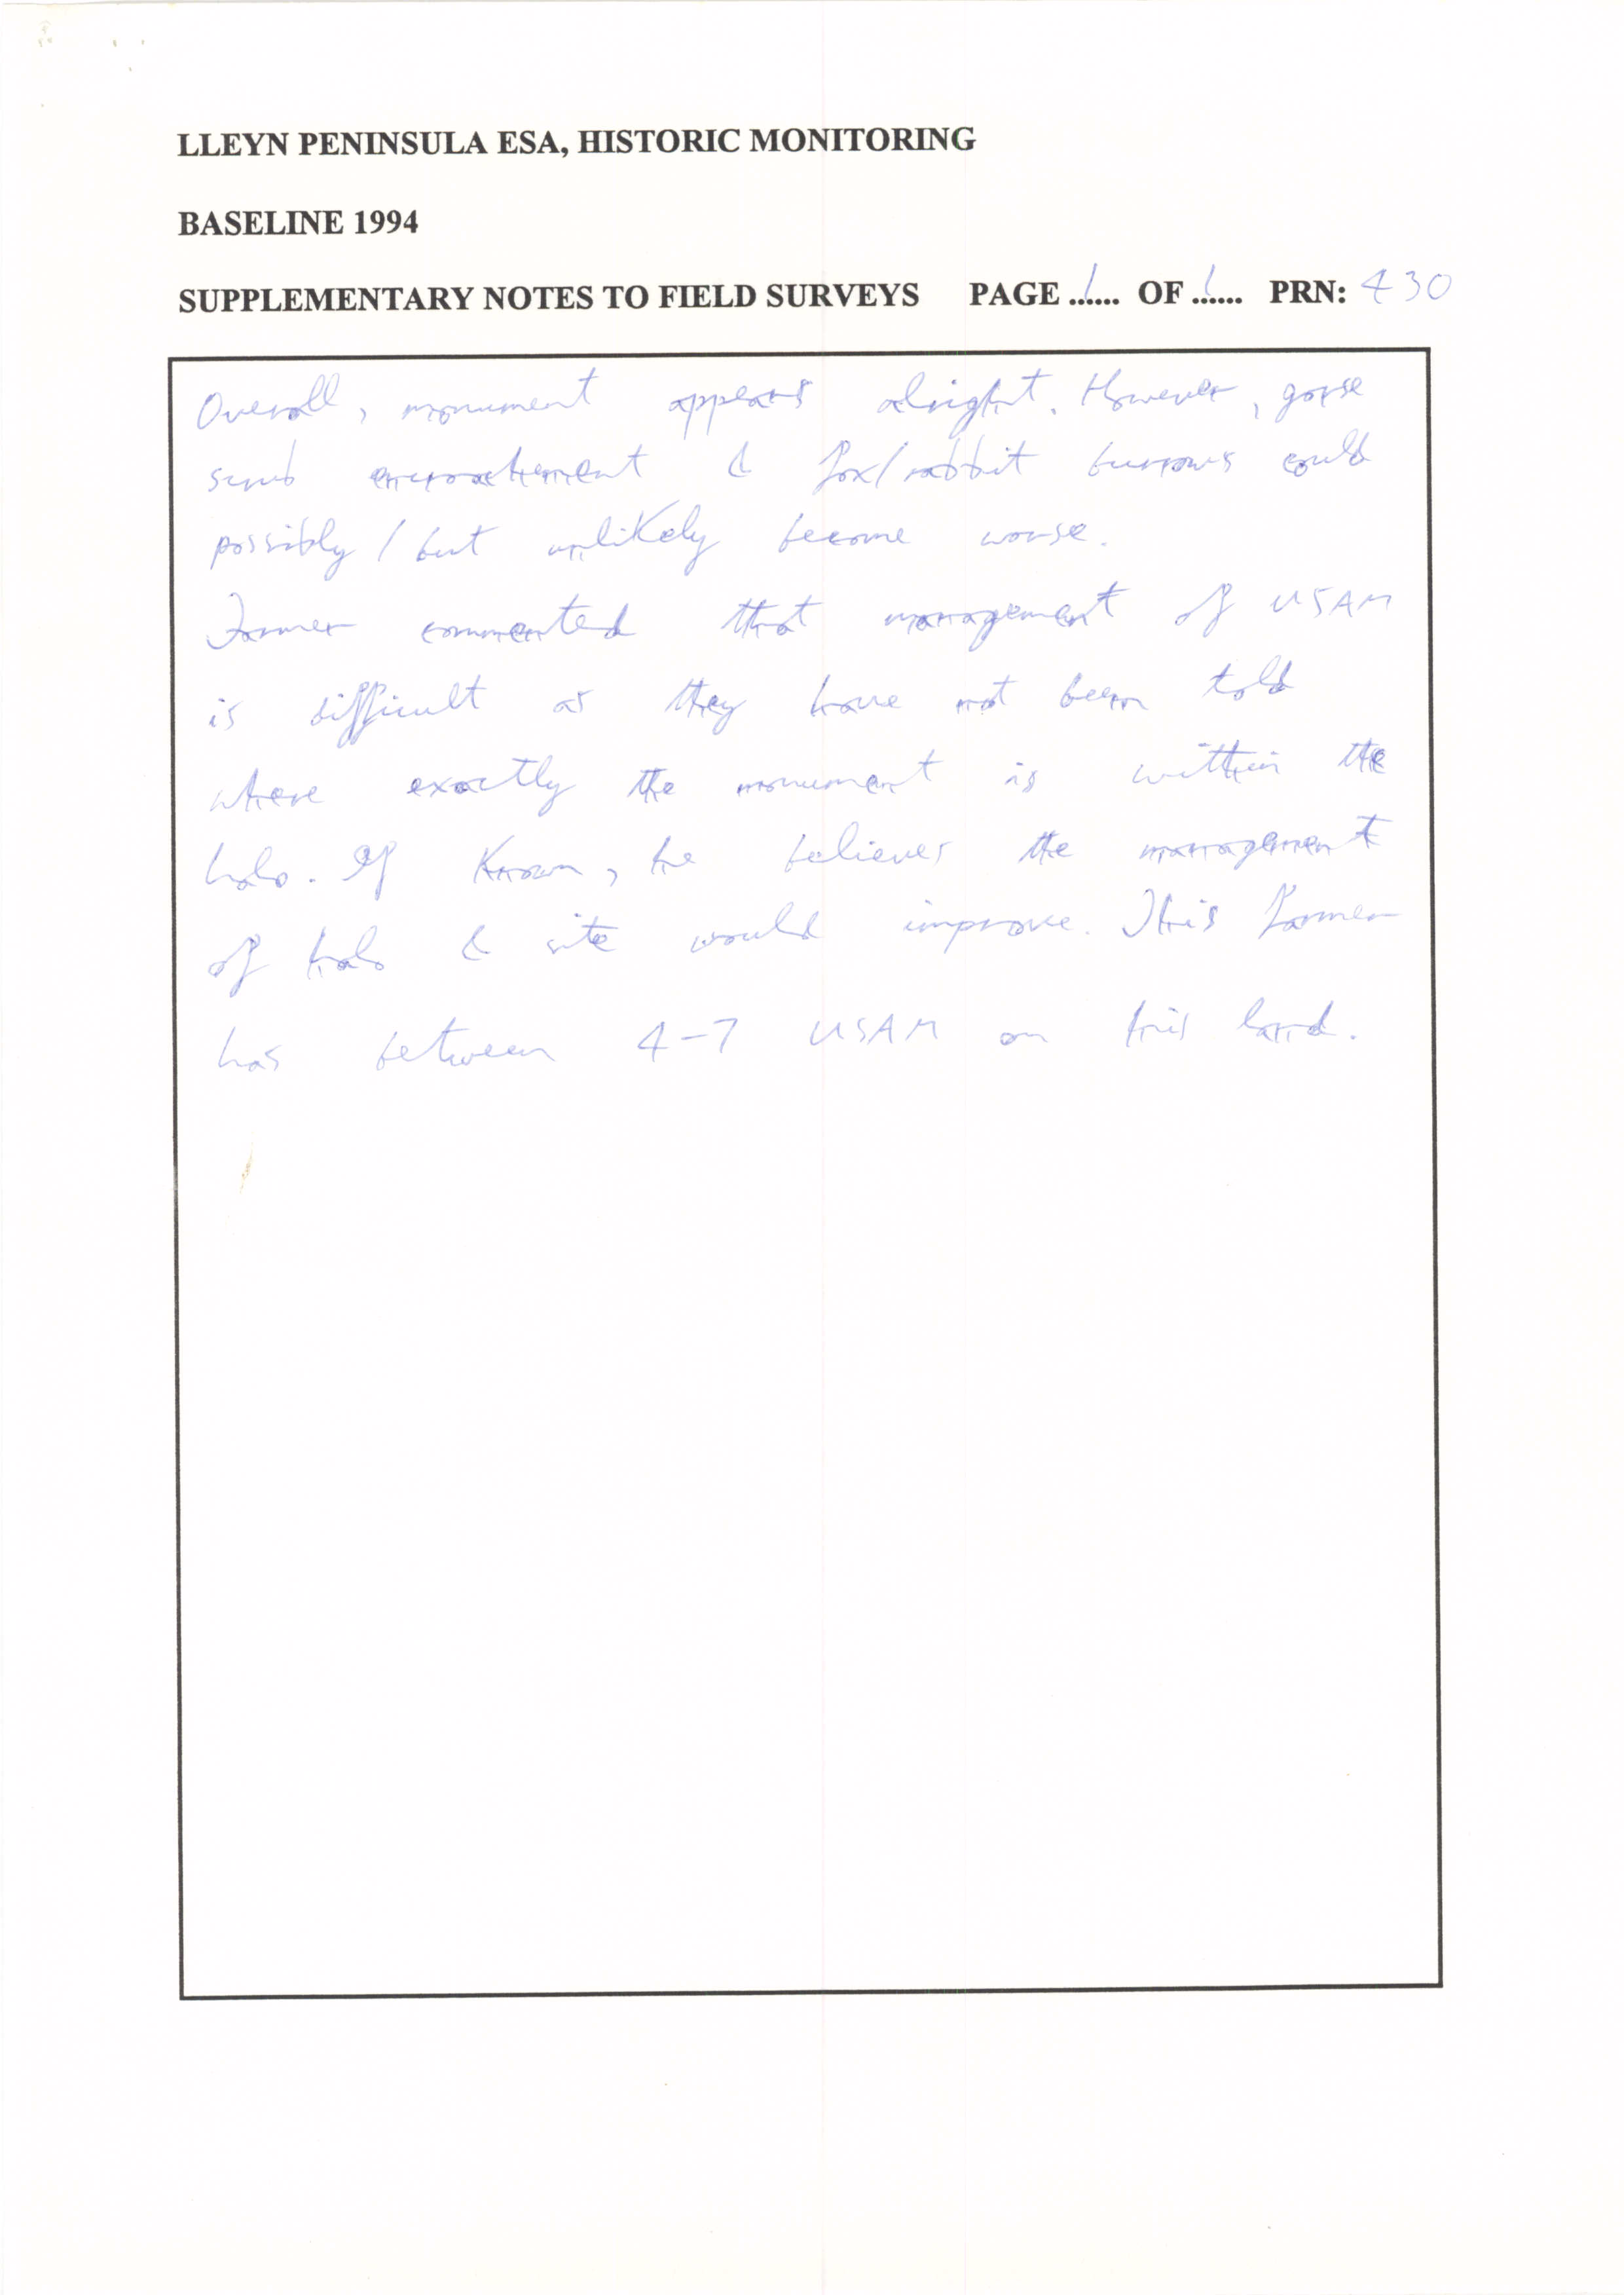 LLEYN PENINSULA ESA, HISTORIC MONITORING
BASELINE 1994
SUPPLEMENTARY NOTES TO FIELD SURVEYS PAGE ...1... OF ...1... PRN: 430
Overall, monument appears alright. However, gorse
scrub encroachement & fox/rabbit burrows could
possibly / but unlikely become worse.
Farmer commented that management of USAM
is difficult as they have not been told
where exactly the monument is within the
halo. If known, he believes the management
of halo & site would improve. This farmer
has between 4-7 USAM on his land.